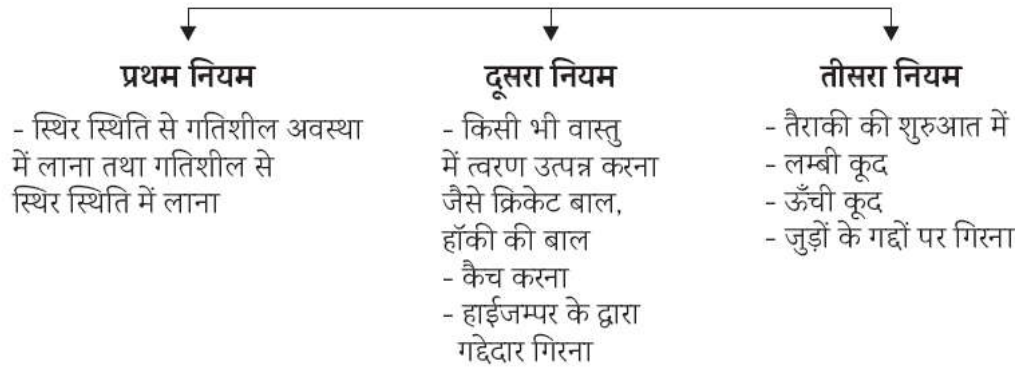 प्रथम नियम
- स्थिर स्थिति से गतिशील अवस्था
में लाना तथा गतिशील से
स्थिर स्थिति में लाना
दूसरा नियम
- किसी भी वास्तु
में त्वरण उत्पन्न करना
जैसे क्रिकेट बाल,
हॉकी की बाल
- कैच करना
- हाईजम्पर के द्वारा
गद्देदार गिरना
तीसरा नियम
- तैराकी की शुरुआत में
- लम्बी कूद
- ऊँची कूद
- जुड़ों के गद्दों पर गिरना